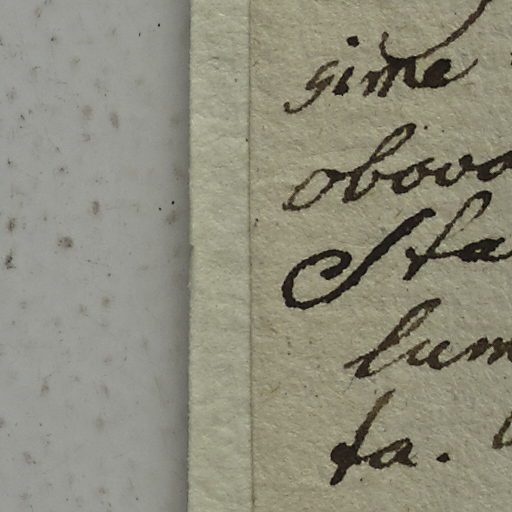 sime
obovo
Sta
lum
ta.